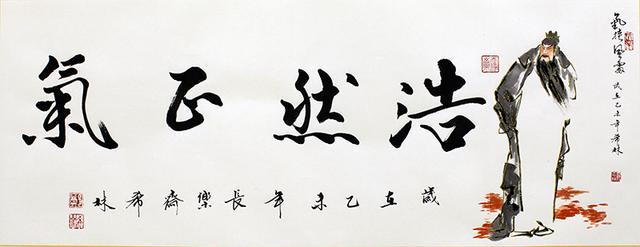 氣風雲
歲在乙未年希林
浩然正氣
歲在乙未年長樂齋希林